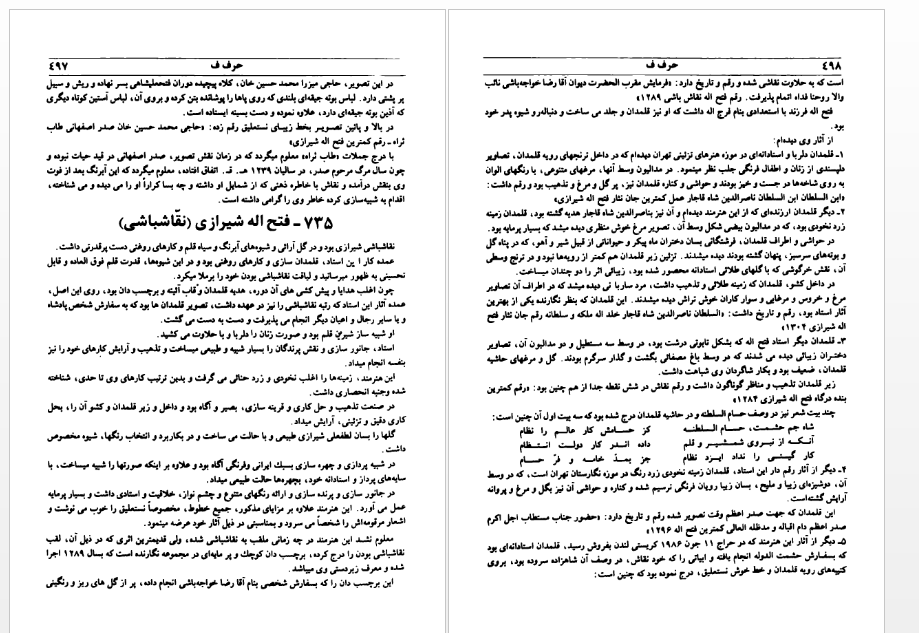 حرف ف
٤٩٧
در این تصویر، حاجی میرزا محمد حسین خان، کلاه پیچیده دوران فتحعلیشاهی بسر نهاده و ریش و سبیل
پر پشتی دارد. لباس بوته جیقه‌ای بلندی که روی پاها را پوشانده بتن کرده و بروی آن، لباس آستین کوتاه دیگری
که آذین بوته جیقه‌ای دارد، علاوه نموده و دست بسینه ایستاده است.
در بالا و پائین تصویر بخط زیبای نستعلیق رقم زده: «حاجی محمد حسین خان صدر اصفهانی طاب
ثراه ـ رقم کمترین فتح اله شیرازی»
با درج جملات «طاب ثراه» معلوم میگردد که در زمان نقش تصویر، صدر اصفهانی در قید حیات نبوده و
چون سال مرگ مرحوم صدر، در سالیان ۱۲۳۹ هـ. ق. اتفاق افتاده، معلوم میگردد که این آبرنگ بعد از فوت
وی بنقش درآمده و نقاش با خاطره ذهنی که از شمایل او داشته و چه بسا کراراً او را می دیده و می شناخته،
اقدام به شبیه‌سازی کرده خاطر وی را گرامی داشته است.
۷۳۵ ـ فتح اله شیرازی (نقّاشباشی)
نقاشباشی شیرازی بود و در گل آرائی و شیوه‌های آبرنگ و سیاه قلم و کارهای روغنی دست پرقدرتی داشت.
عمده کار این استاد، قلمدان سازی و کارهای روغنی بود و در این شیوه‌ها، قدرت قلم فوق العاده و قابل
تحسینی به ظهور میرسانید و لیاقت نقاشباشی بودن خود را برملا میکرد.
چون اغلب هدایا و پیش کشی های آن دوره، هدیه قلمدان و قاب آئینه و برچسب دان بود، روی این اصل،
عمده آثار این استاد که رتبه نقاشباشی را نیز در عهده داشت، تصویر قلمدان ها بود که به سفارش شخص پادشاه
و یا سایر رجال و اعیان دیگر انجام می پذیرفت و دست به دست می گشت.
او شبیه ساز شیرین قلم بود و صورت زنان را دلربا و با حلاوت می کشید.
استاد، جانور سازی و نقش پرندگان را بسیار شبیه و طبیعی میساخت و تذهیب و آرایش کارهای خود را نیز
بنفسه انجام میداد.
این هنرمند، زمینه‌ها را اغلب نخودی و زرد حنائی می گرفت و بدین ترتیب کارهای وی تا حدی، شناخته
شده وجنبه انحصاری داشت.
در صنعت تذهیب و حل کاری و قرینه سازی، بصیر و آگاه بود و داخل و زیر قلمدان و کشو آن را، بحل
کاری دقیق و تزئینی، آرایش میداد.
گلها را بسان لطفعلی شیرازی طبیعی و با حالت می ساخت و در بکاربرد و انتخاب رنگها، شیوه مخصوص
داشت.
در شبیه پردازی و چهره سازی بسبک ایرانی وفرنگی آگاه بود و علاوه بر اینکه صورتها را شبیه میساخت، با
سایه‌های پرداز و استادانه خود، بچهره‌ها حالت طبیعی میداد.
در جانور سازی و پرنده سازی و ارائه رنگهای متنوع و چشم نواز، خلاقیت و استادی داشت و بسیار پرمایه
عمل می آورد. این هنرمند علاوه بر مزایای مذکور، جمیع خطوط، مخصوصاً نستعلیق را خوب می نوشت و
اشعار مرقومه‌اش را شخصاً می سرود و بمناسبتی در ذیل آثار خود عرضه مینمود.
معلوم نشد این هنرمند در چه زمانی ملقب به نقاشباشی شده، ولی قدیمترین اثری که در ذیل آن، لقب
نقاشباشی بودن را درج کرده، برچسب دان کوچک و پر مایه‌ای در مجموعه نگارنده است که بسال ۱۲۸۹ اجرا
شده و معرف زبردستی وی میباشد.
این برچسب دان را که بسفارش شخصی بنام آقا رضا خواجه‌باشی انجام داده، پر از گل های ریز و رنگینی
حرف ف
٤٩٨
است که به حلاوت نقاشی شده و رقم و تاریخ دارد: «فرمایش مقرب الحضرت دیوان آقا رضا خواجه‌باشی نائب
والا روحنا فداه اتمام پذیرفت. رقم فتح اله نقاش باشی ۱۲۸۹»
فتح اله فرزند با استعدادی بنام فرج اله داشت که او نیز قلمدان و جلد می ساخت و دنباله‌رو شیوه پدر خود
بود.
از آثار وی دیده‌ام:
۱ـ قلمدان دلربا و استادانه‌ای در موزه هنرهای تزئینی تهران دیده‌ام که در داخل ترنجهای رویه قلمدان، تصاویر
دلپسندی از زنان و اطفال فرنگی جلب نظر مینمود. در مدالیون وسط آنها، مرغهای متنوعی، با رنگهای الوان
به روی شاخه‌ها در جست و خیز بودند و حواشی و کناره قلمدان نیز، پر گل و مرغ و تذهیب بود و رقم داشت:
«ابن السلطان ابن السلطان ناصرالدین شاه قاجار عمل کمترین جان نثار فتح اله شیرازی»
۲ـ دیگر قلمدان ارزنده‌ای که از این هنرمند دیده‌ام و آن نیز بناصرالدین شاه قاجار هدیه گشته بود، قلمدان زمینه
زرد نخودی بود، که در مدالیون بیضی شکل وسط آن، تصویر مرغ خوش منظری دیده میشد که بسیار پرمایه بود.
در حواشی و اطراف قلمدان، فرشتگانی بسان دختران ماه پیکر و حیواناتی از قبیل شیر و آهو، که در پناه گل
و بوته‌های سرسبز، پنهان گشته بودند دیده میشدند. تزئین زیر قلمدان هم کمتر از رویه‌ها نبود و در ترنج وسطی
آن، نقش خرگوشی که با گلهای طلائی استادانه محصور شده بود، زیبائی اثر را دو چندان میساخت.
در داخل کشو، قلمدان که زمینه طلائی و تذهیب داشت، مرد ساربانی دیده میشد که در اطراف آن تصاویر
مرغ و خروس و مرغابی و سوار کاران خوش تراش دیده میشدند. این قلمدان که بنظر نگارنده یکی از بهترین
آثار استاد بود، رقم و تاریخ داشت: «السلطان ناصرالدین شاه قاجار خلد اله ملکه و سلطانه رقم جان نثار فتح
اله شیرازی ۱۳۰۴»
۳ـ قلمدان دیگر استاد فتح اله که بشکل تابوتی درشت بود، در وسط سه مستطیل و دو مدالیون آن، تصاویر
دختران زیبائی دیده می شدند که در وسط باغ مصفائی بگشت و گذار سرگرم بودند. گل و مرغهای حاشیه
قلمدان، ضعیف بود و بکار شاگردان وی شباهت داشت.
زیر قلمدان تذهیب و مناظر گوناگون داشت و رقم نقاش در شش نقطه جدا از هم چنین بود: «رقم کمترین
بنده درگاه فتح اله شیرازی ۱۲۸۴»
چند بیت شعر نیز در وصف حسام السلطنه و در حاشیه قلمدان درج شده بود که سه بیت اول آن چنین است:
شاه جم حشمت، حسام السلطنه کز حسامش کار عالم را نظام
آنکه از نیروی شمشیر و قلم داده اندر کار دولت انتظام
کار گیتی را نداد ایزد نظام جز بمد خامه و فر حسام
۴ـ دیگر از آثار رقم دار این استاد، قلمدان زمینه نخودی زرد رنگ در موزه نگارستان تهران است، که در وسط
آن، دوشیزه‌ای زیبا و ملیح، بسان زیبا رویان فرنگی ترسیم شده و کناره و حواشی آن نیز بگل و مرغ و پروانه
آرایش گشته‌است.
این قلمدان که جهت صدر اعظم وقت تصویر شده رقم و تاریخ دارد: «حضور جناب مستطاب اجل اکرم
صدر اعظم دام اقباله و مدظله العالی کمترین فتح اله ۱۲۹۶»
۵ـ دیگر از آثار این هنرمند که در حراج ۱۱ جون ۱۹۸۶ کریستی لندن بفروش رسید، قلمدان استادانه‌ای بود
که بسفارش حشمت الدوله انجام یافته و ابیاتی را که خود نقاش، در وصف آن شاهزاده سروده بود، بروی
کتیبه‌های رویه قلمدان و خط خوش نستعلیق، درج نموده بود که چنین است: